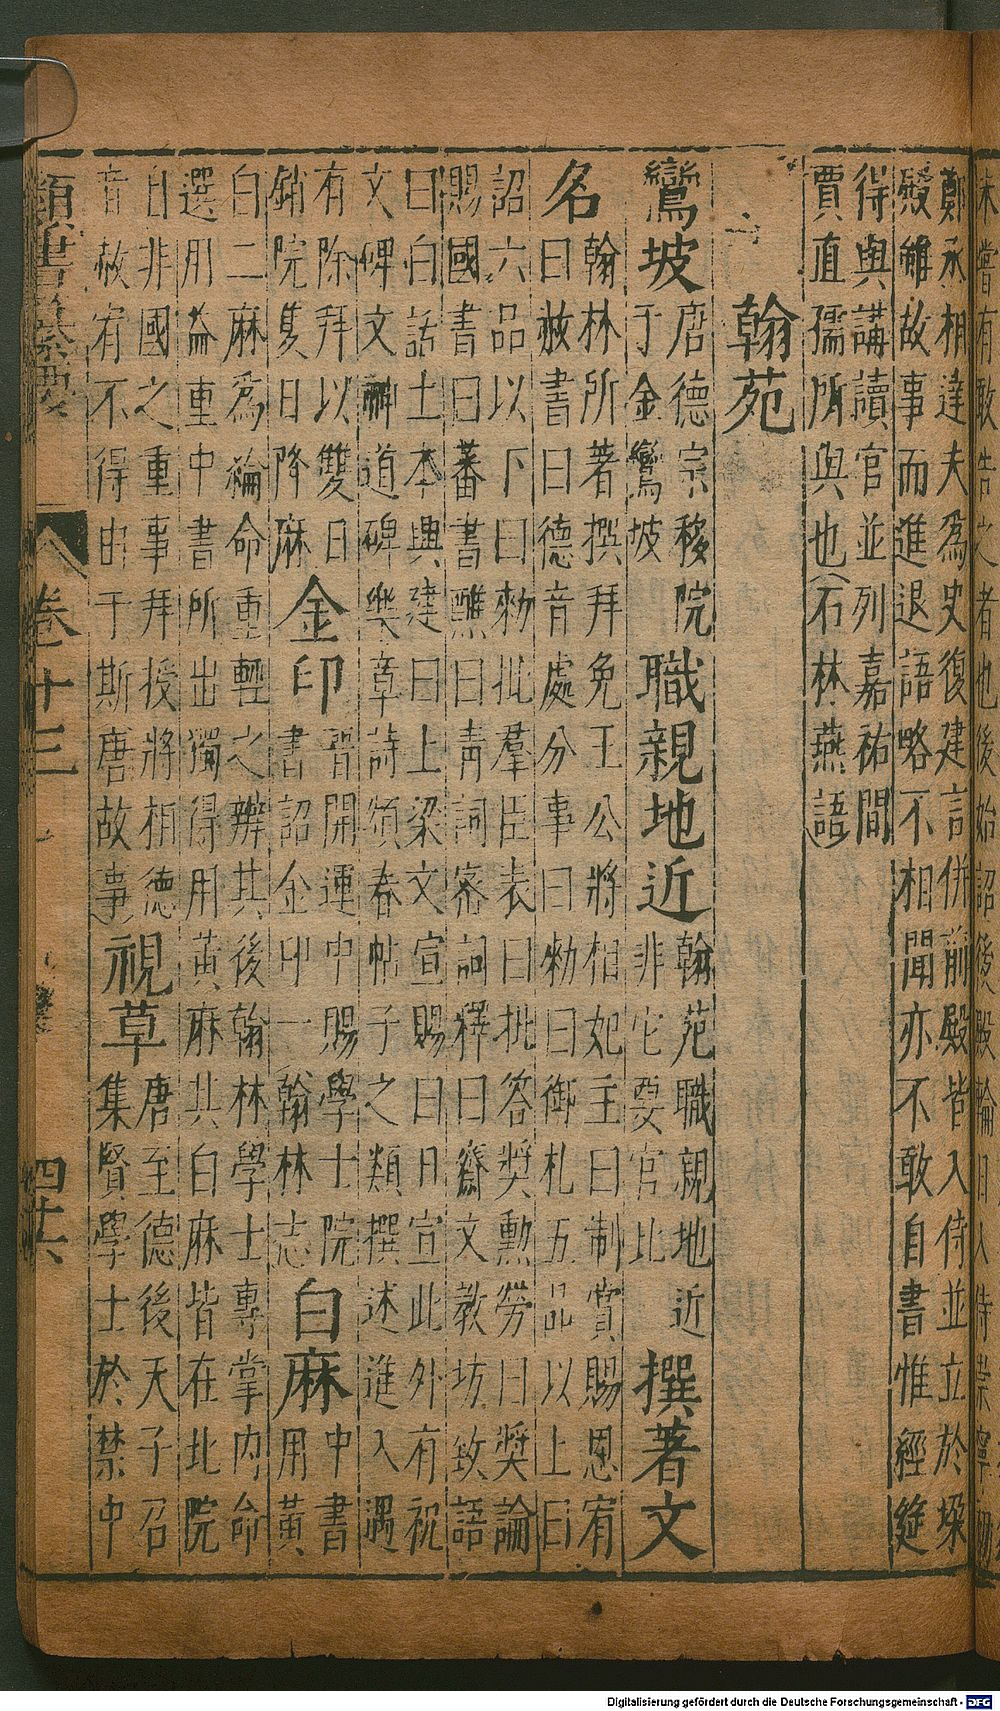 鄭丞相達夫爲史復建言併前殿皆入侍並立於垜
殿雖故事而進退語略不相聞亦不敢自書惟經筵
得與講讀官並列嘉祐間
賈直孺所與也(石林燕語)
翰苑
鸞坡
唐德宗移院
于金鸞坡
職親地近
翰苑職親地近
非它要官比
撰著文
名
翰林所著撰拜免王公將相妃主曰制賞賜恩宥
曰赦書曰德音處分事曰勑曰御札五品以上曰
詔六品以下曰勑批羣臣表曰批答奬勳勞曰奬論
賜國書曰蕃書醮曰青詞密詞釋曰齋文教坊致語
曰白話土木興建曰上梁文宣賜曰口宣此外有祝
文碑文神道碑樂章詩頌春帖子之類撰述進入遇
有除拜以雙日
銷院隻日降麻
金印
晋開運中賜學士院
書詔金印一翰林志
白麻
中書
用黃
白二麻爲綸命重輕之辨其後翰林學士專掌內命
選用益重中書所出獨得用黃麻其白麻皆在北院
自非國之重事拜授將相德
音赦宥不得由于斯唐故事)
視草
唐至德後天子召
集賢學士於禁中
類書纂要
卷十三
四十六
Digitalisierung gefördert durch die Deutsche Forschungsgemeinschaft - DFG